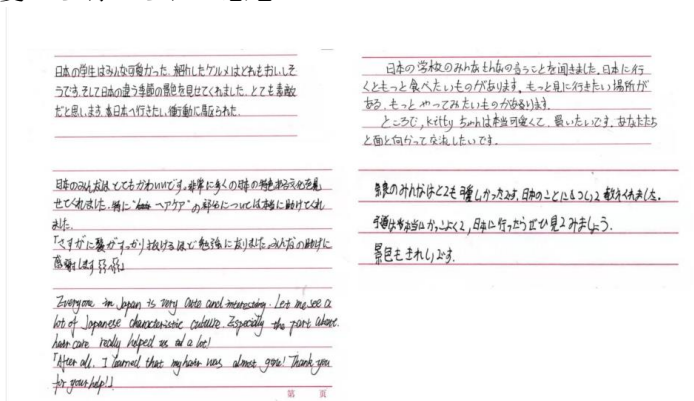 日本の学生はみんな可愛かった。紹介したグルメはどれもおいしそ
うです。そして日本の違う季節の景色を見せてくれました。とても素敵
だと思います。本日本へ行きたい衝動に駆られた。
日本のみんなはとてもかわいいです。非常に多くの日本の特色ある文化を見
せてくれました。特に"ヘアケア"の部分については本当に助けてくれ
ました。
「さすがに髪がすっかり抜けるほど勉強になりました。みんなの助けに
感謝します
Everyone in Japan is very cute and interesting. Let me see a
lot of Japanese characteristic culture. Especially the part where
hair care really helped us a lot!
「After all, I learned that my hair was almost gone! Thank you
for your help!」
第 页
日本の学校のみんなの言うことを聞きました。日本に行
くともっと食べたいものがあります。もっと見に行きたい場所が
ある。もっとやってみたいものがあります。
ところで、Kittyちゃんは本当可愛くて、買いたいです。あなたたち
と面と向かって交流したいです。
のみんなはとても優しかったです。日本のことについて教えてくれました。
は本当にかっこよくて、日本に行ったらぜひ見てみましょう。
景色もきれいです。